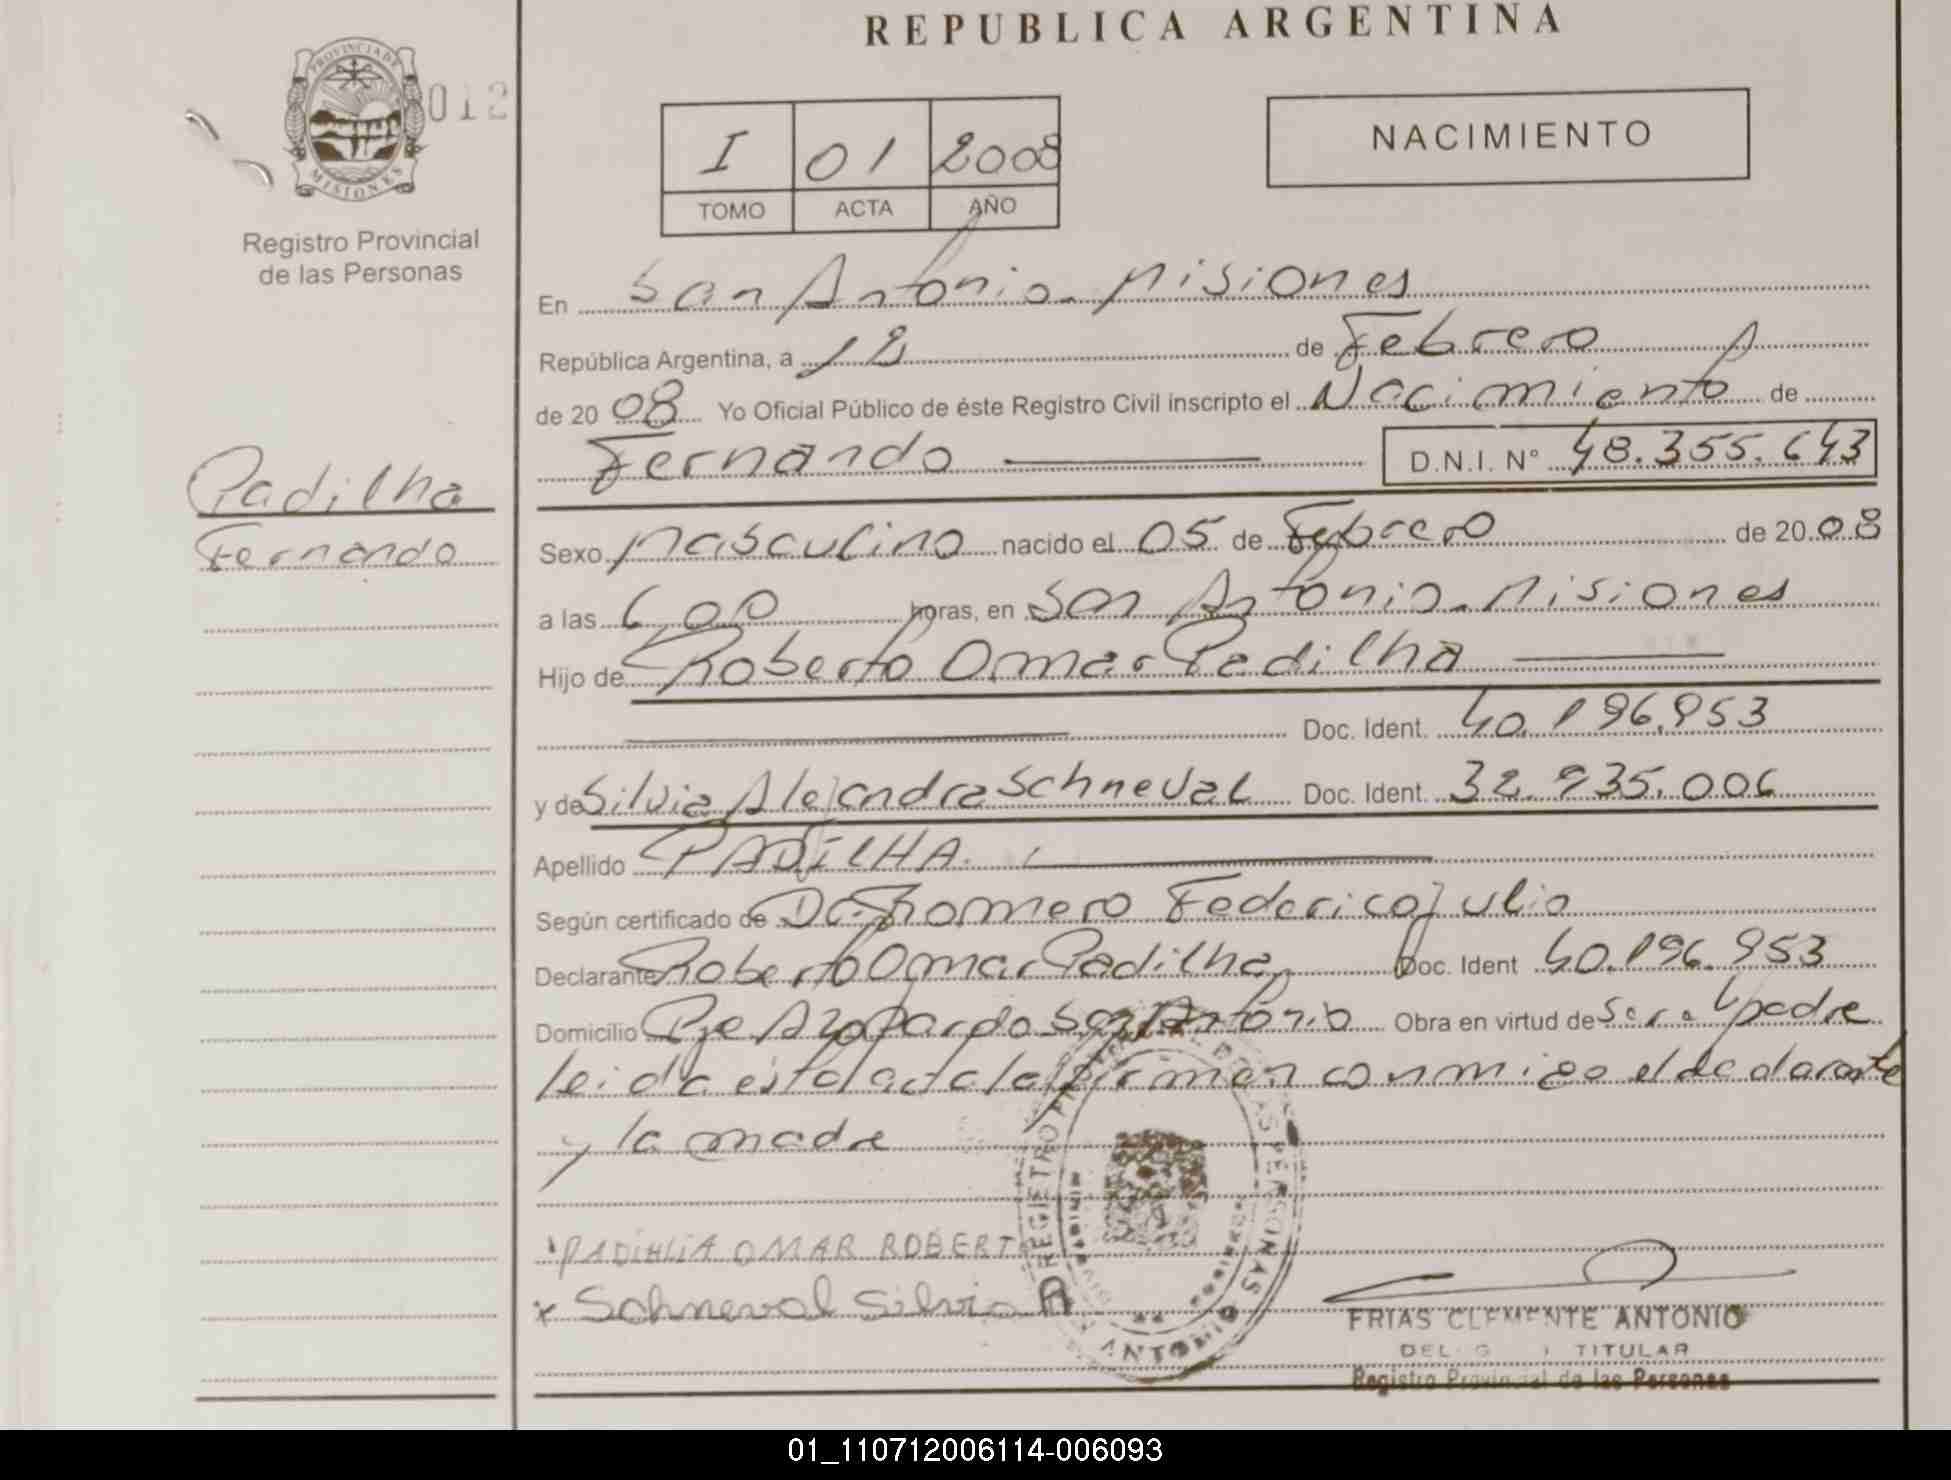 REPUBLICA ARGENTINA
PROVINCIA DE
MISIONES
012
Registro Provincial
de las Personas
I 01 2008
TOMO ACTA AÑO
NACIMIENTO
En San Antonio - Misiones
República Argentina, a 12 de Febrero
de 2008 Yo Oficial Público de éste Registro Civil inscripto el Nacimiento de
Fernando D.N.I. N° 48.355.643
Padilha
Fernando
Sexo Masculino nacido el 05 de Febrero de 2008
a las 6,00 horas, en San Antonio - Misiones
Hijo de Roberto Omar Padilha
Doc. Ident. 40.196.953
y de Silvia Alejandra Schneval Doc. Ident. 32.935.006
Apellido PADILHA.
Según certificado de Dr. Romero Federico Julio
Declarante Roberto Omar Padilha Doc. Ident 40.196.953
Domicilio Pje Azopardo San Antonio Obra en virtud de ser el padre
leida esta acta la firman conmigo el declarante
y la madre
PADIHLIA OMAR ROBERTO
x Schneval Silvia A
REGISTRO DE LAS PERSONAS
ANTONIO
FRIAS CLEMENTE ANTONIO
TITULAR
Registro Provincial de las Personas
01_110712006114-006093